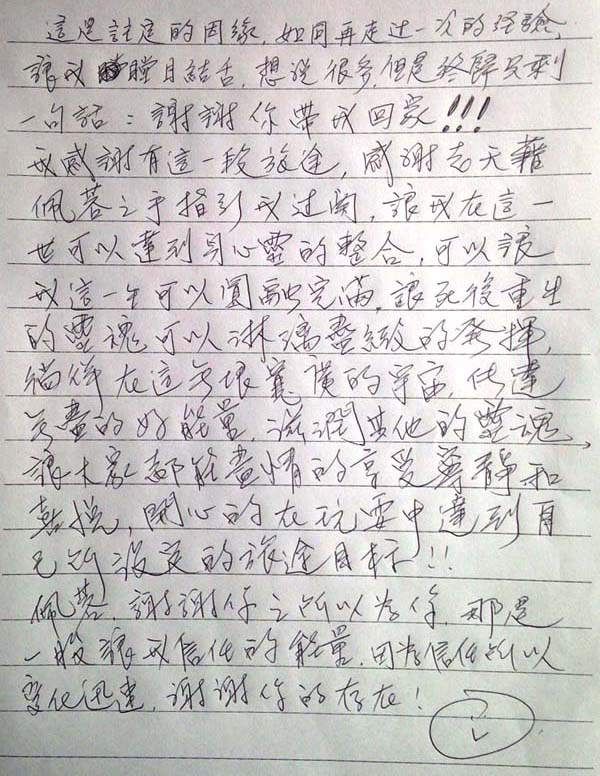 這是註定的因緣,如同再走过一次的经驗,
讓我瞠目結舌,想说很多,但是终歸只剩
一句話：謝謝你帶我回家!!!
我感謝有這一段旅途,感謝老天藉
佩蓉之手指引我过関,讓我在這一
世可以達到身心靈的整合,可以讓
我這一生可以圓融完滿,讓死後重生
的靈魂可以淋漓盡緻的發揮,
徜徉在這無垠寬廣的宇宙,传達
無盡的好能量,滋潤其他的靈魂,
讓大家都能盡情的享受寧靜和
喜悅,開心的在玩耍中達到自
己所设定的旅途目标!!
佩蓉,謝謝你之所以為你,那是
一股讓我信任的能量,因為信任所以
變化迅速,谢谢你的存在!